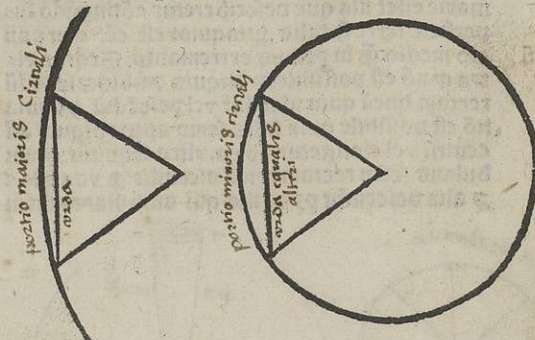 portio maioris Circuli
corda
portio minoris circuli
corda equalis
alteri